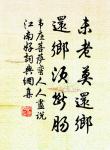 未老莫還鄉
還鄉須斷腸
韋莊菩薩蠻人人盡說
江南好詞興綱書